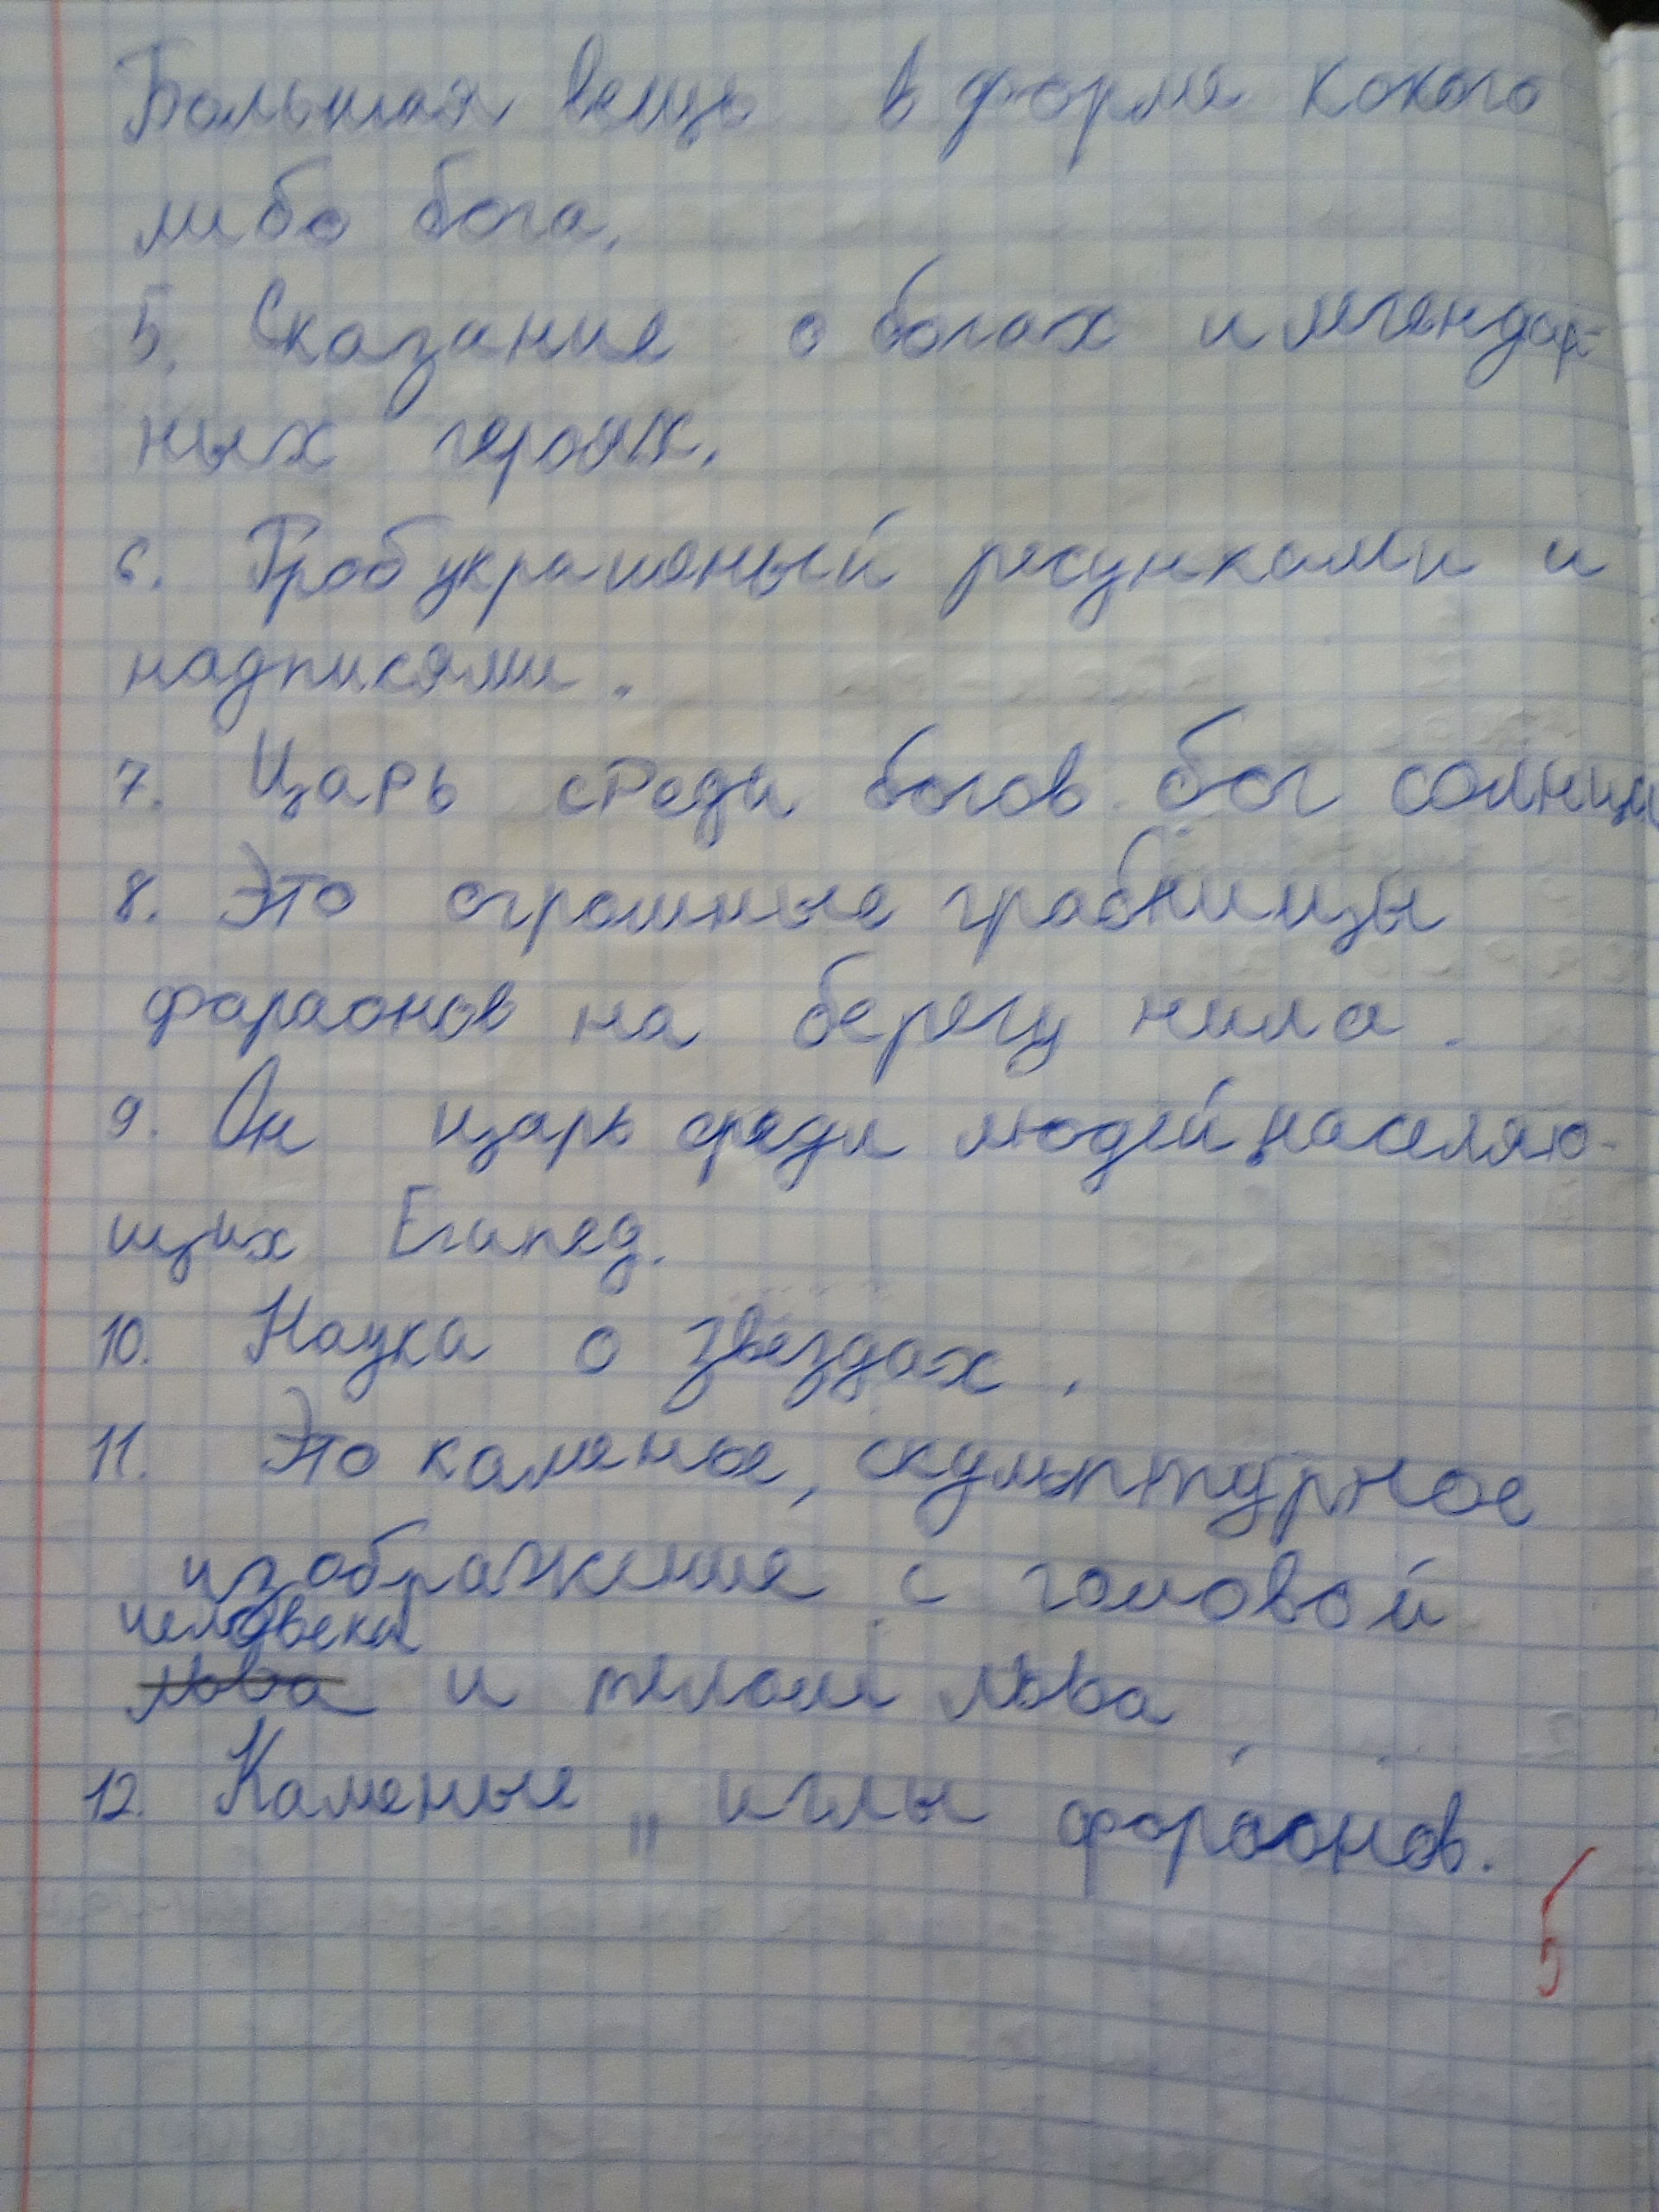 Большая вещь в форме кокого
либо бога.
5. Сказание о богах и легендар-
ных героях.
6. Гроб украшеный ресунками и
надписями.
7. Царь среди богов бог солнца
8. Это огромные грабницы
фараонов на берегу нила.
9. Он царь среди людей, населяю-
щих Егинед.
10. Наука о звёздах.
11. Это каменое, скульптурное
изображение с головой
человека
льва и телом льва,
12. Каменые „ иглы фораонов.
5